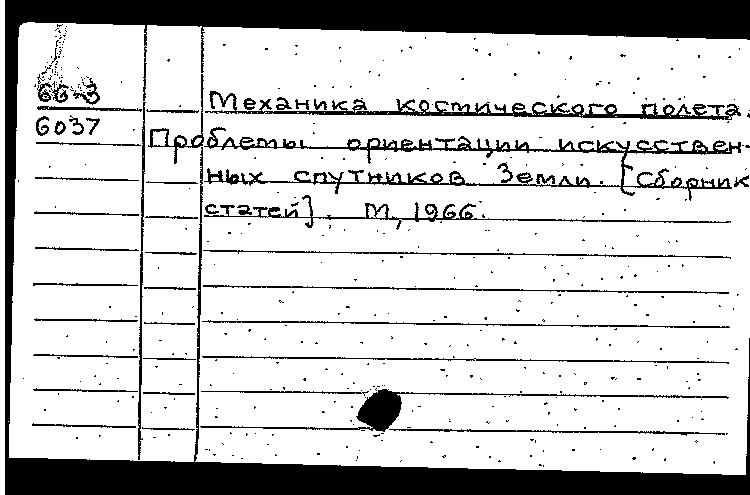 66-3
Механика космического полета.
6037
Проблемы ориентации искусствен-
ных спутников Земли. [Сборник
статей]. М., 1966.